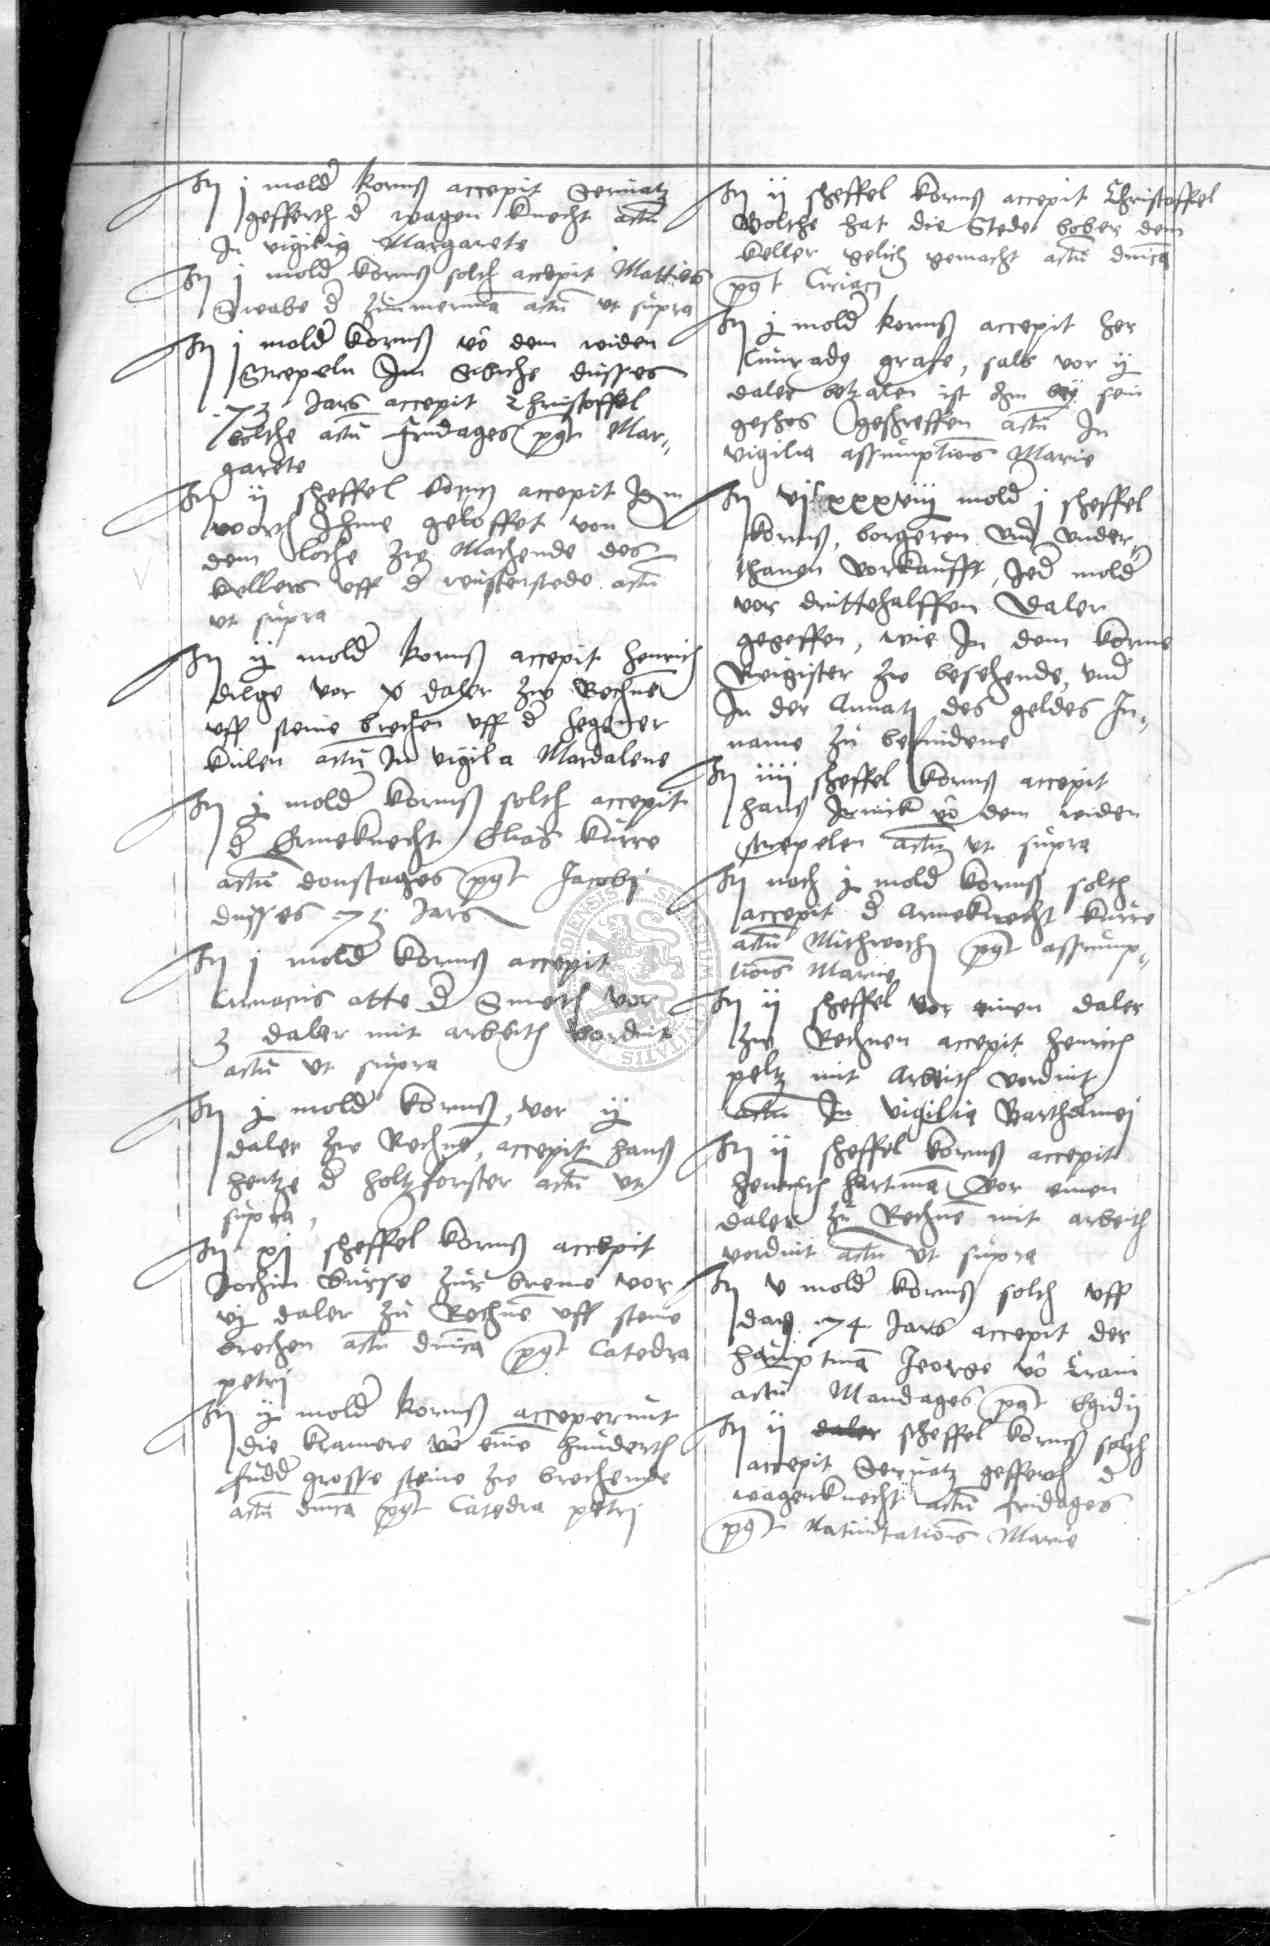 It j mold korns accepit Servatz
gefferth d wagen knecht actu
In vigilia Margarete
It j mold korns solch accepit Matties
Swabe d zimmerma actu ut supra
It j mold korns vo dem widen
Strepeln Im Sliche dusses
73 Jars accepit Christoffel
bolthe actu fridages pqt Mar-
garete
It ij sheffel korns accepit
worth Ihme geloffet von
dem loche zw Machende des
kellers uff d actu
ut supra
It ij mold korns accepit henrich
dilge vor x daler zw Rechne
uff steine brechen uff d heger
kulen actu In vigila Mardalene
It j mold korns solch accepit
d Armeknecht Elias kurre
actu donstages pqt Jacobj
dusses 73 Jars
It j mold korns accepit
otte d Smeth vor
3 daler mit arbeith vordint
actu ut supra
It j mold korns, vor ij
daler zw Rechne, accepit hans
hentze d holtzforster actu ut
supra,
It xj sheffel korns accepit
Jochim burse zur breme vor
vj daler zu Rechne uff steine
brechen actu dnica pqt Catedra
petrj
It ij mold korns acceperunt
die kramere vo eine hunderth
fudd grosse steine zw brechende
actu dnica pqt Catedra petrj
It ij sheffel korns accepit Christoffel
Bolthe hat die Stede bober dem
keller gelich gemacht actu dnica
pqt Ciriacj
It j mold korns accepit her
Cunrady grafe, sals vor ij
daler betzalen ist Ihm bey sein
gesches geschreffen actu In
vigilia assumptionis Marie
It vjc xxxviij mold j sheffel
korns, borgeren und under-
thanen vorkaufft, Jed mold
vor drittehalffen Daler
gegeffen, wie In dem korne
Reigister zw besehende, und
In der Annatj des geldes In-
name zu befindene
It iiij sheffel korns accepit
hans vo dem widen
strepelen actu ut supra
It noch j mold korns solch
accepit d Armeknecht kurre
actu Mithwoch pqt assump-
tionis Marie
It ij sheffel vor einen daler
zw Rechnen accepit henrich
peltz mit Arbeith vordint
actu In vigilia Bartholmej
It ij sheffel korns accepit
henrich hartma vor einen
daler zu Rechne mit arbeith
verdint actu ut supra
It v mold korns solch uff
das 74 Jars accepit der
hauptma Jeorge vo
actu Mandages pqt Egidij
It ij daler scheffel korns solch
accepit Servatz gefferth d
wagenknecht actu fridages
pqt Nativitationis Marie